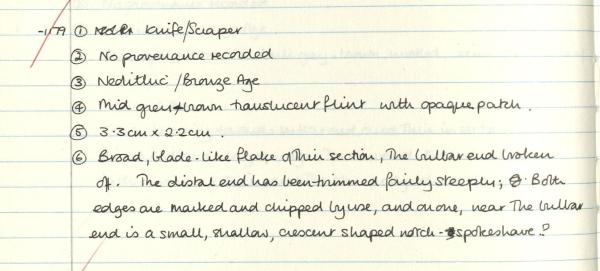 -1179 ① Knife/Scraper
② No provenance recorded
③ Neolithic / Bronze Age
④ Mid grey-brown translucent flint with opaque patch.
⑤ 3.3cm x 2.2cm.
⑥ Broad, blade-like flake of thin section, The bulbar end broken
off. The distal end has been trimmed fairly steeply; Both
edges are marked and chipped by use, and on one, near The bulbar
end is a small, shallow, crescent shaped notch - spokeshave?